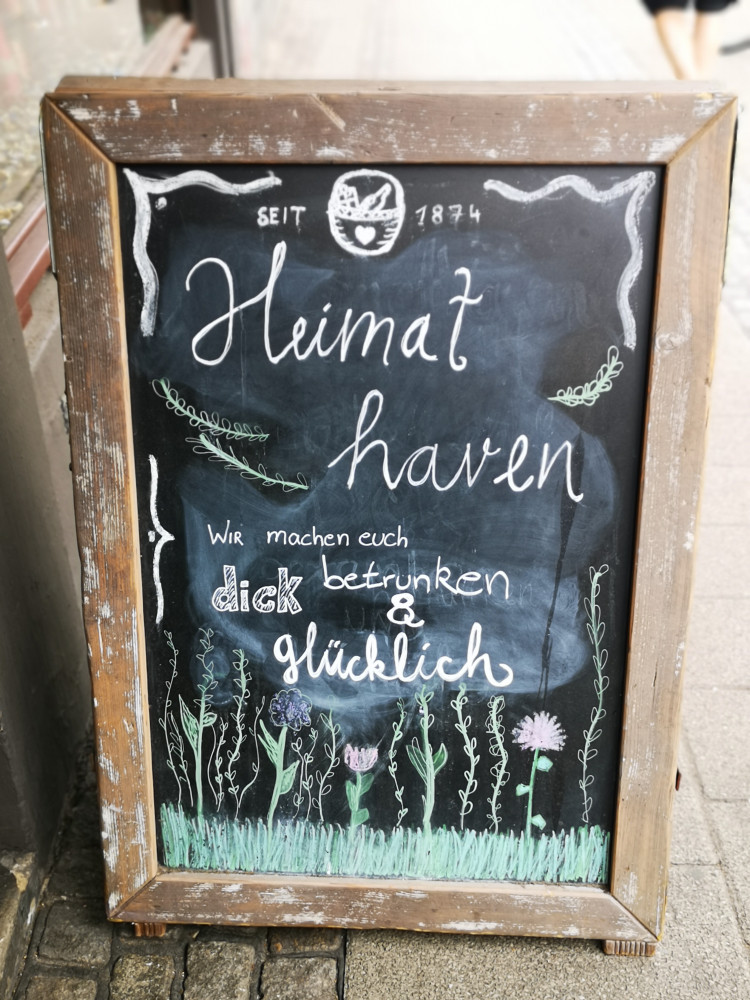 SEIT 1874
Heimat
haven
WIR machen euch
dick betrunken
&
glücklich